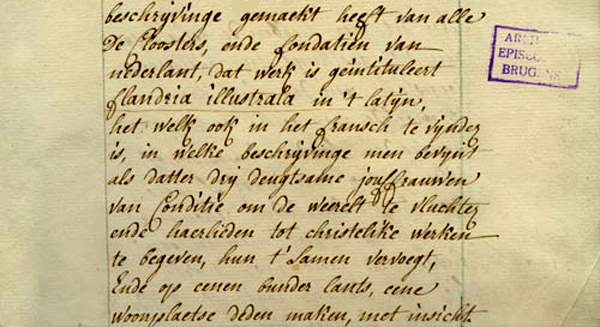 beschrijvinge gemaekt heeft van alle
De Cloosters, ende fondatien van
nederlant, dat werk is geintituleert
flandria illustrata in 't latyn,
het welk ook in het fransch te vynden
is, in welke beschrijvinge men bevynt
als datter drij deugtsame jouffrauwen
van Conditie om de weerelt te vluchten
ende haerlieden tot christelike werken
te begeven, hun t'samen vervoegt,
Ende op eenen bunder lants, eene
woonplaetse deden maken, met insicht
ARCH
EPISCO
BRUGENS